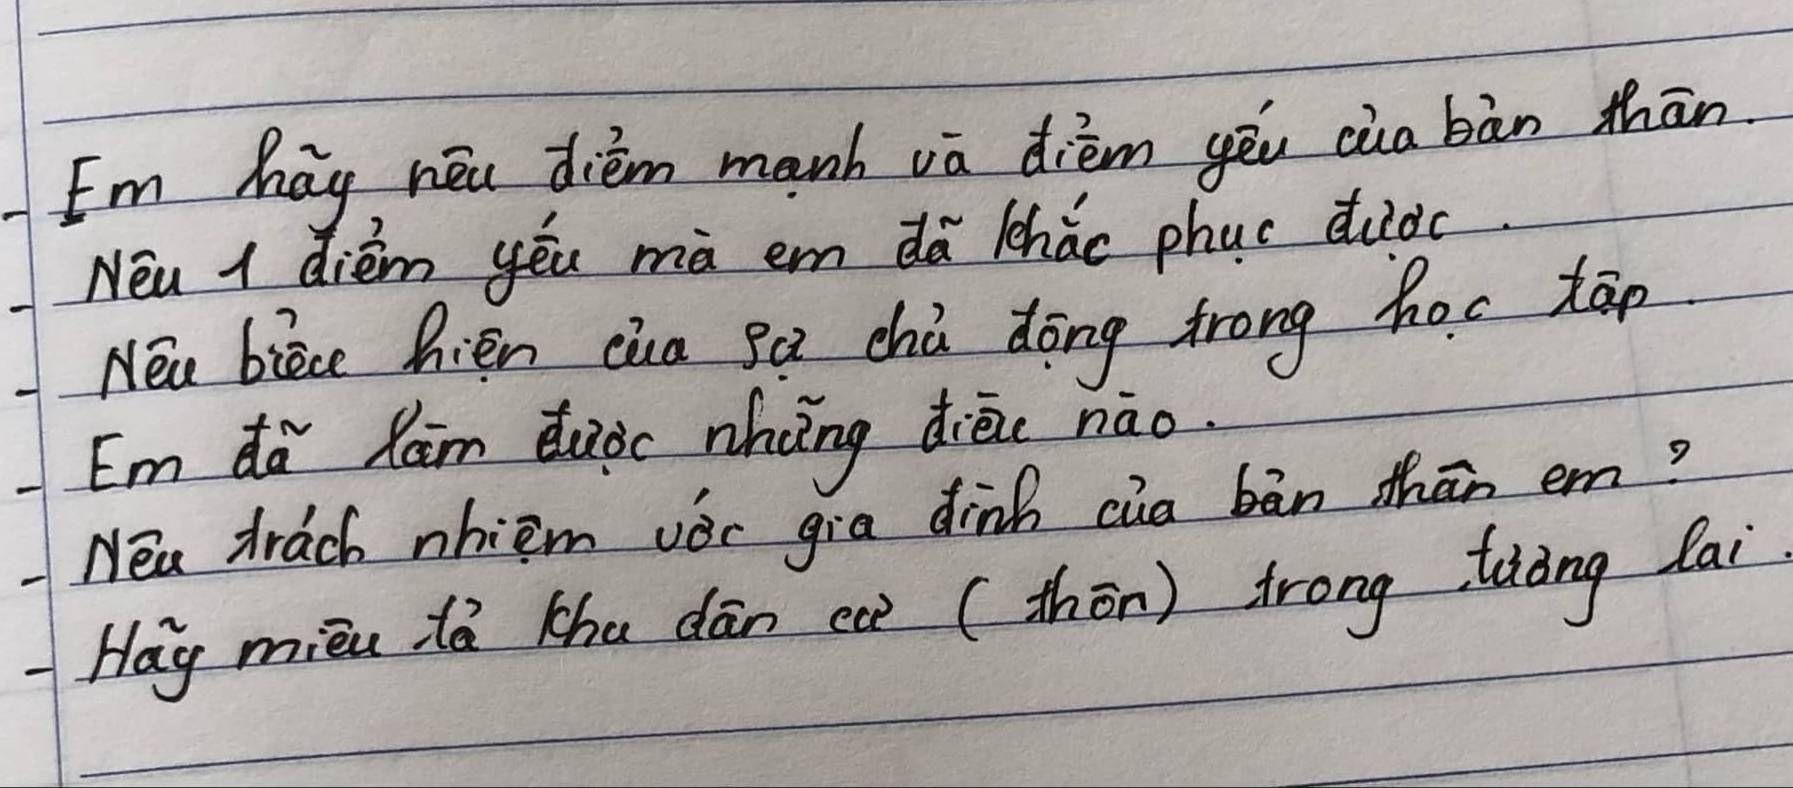 - Em hãy nêu điểm mạnh và điểm yếu của bản thân.
- Nêu 1 điểm yếu mà em đã khắc phục được.
- Nêu biểu hiện của sự chủ động trong học tập.
- Em đã làm được những điều nào.
- Nêu trách nhiệm với gia đình của bản thân em?
- Hãy miêu tả khu dân cư (thôn) trong tương lai.